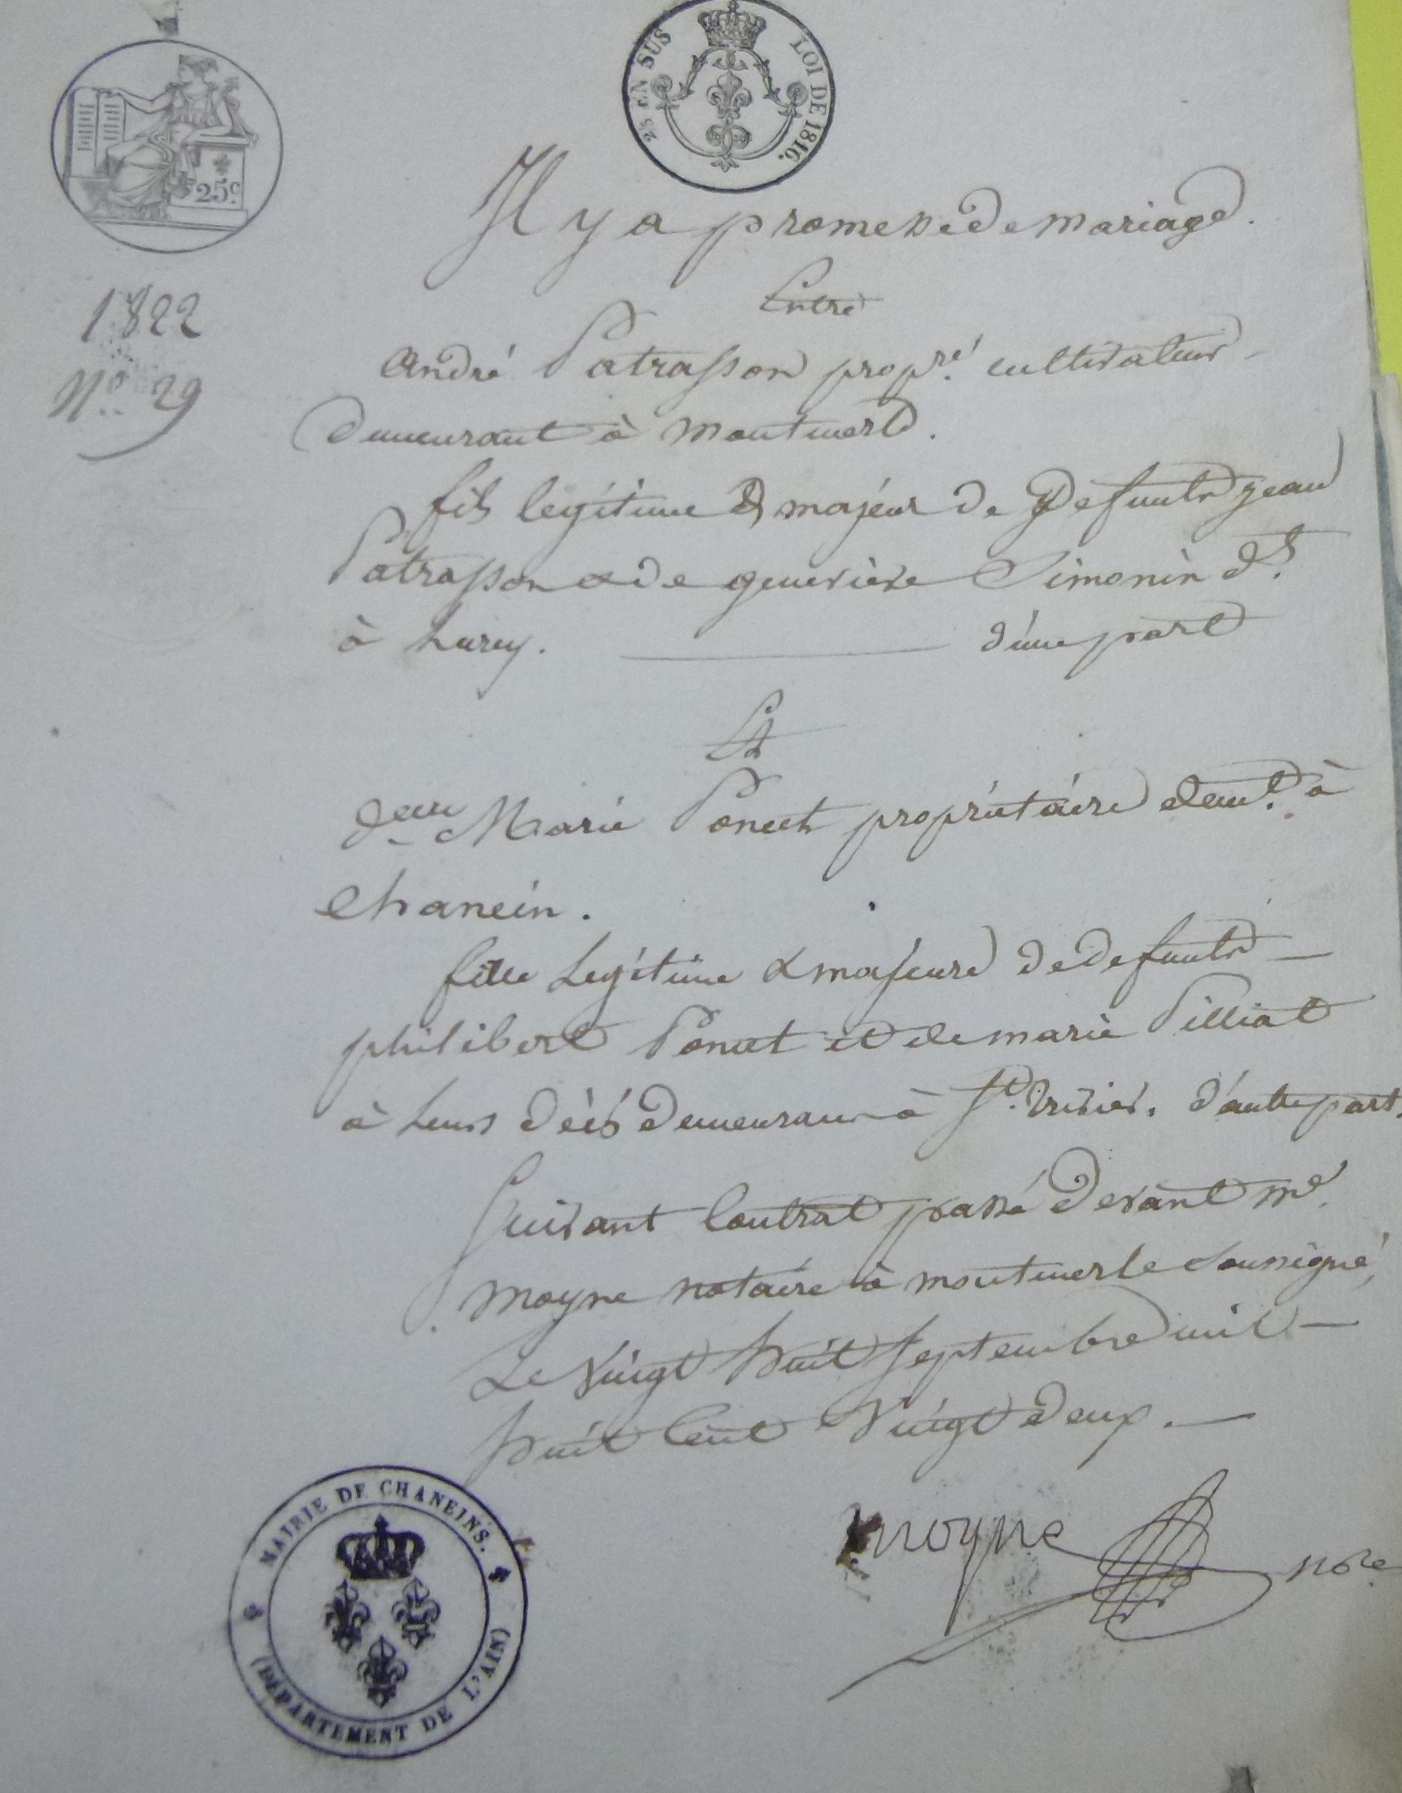 25 EN SUS LOI DE 1816.
25c
Il y a promesse de mariage.
Entre
1822
No. 29
André Patrasson propre. cultivateur
demeurant à montmerle.
fils legitime & majeur de defunts jean
Patrasson & de genevieve Simonin dt.
à Lurcy. d'une part
Et
delle Marie Poncet propriétaire demt. à
Chanein.
fille Legitime & majeure de defunts
philibert Poncet et de marie Pilliat
à leurs décès demeurant à St. Trivier. d'autre part.
Suivant Contrat passé devant me.
moyne notaire à montmerle soussigné,
Le vingt huit septembre mil
huit Cent vingt deux.
moyne nore
MAIRIE DE CHANEINS.
(DÉPARTEMENT DE L'AIN)